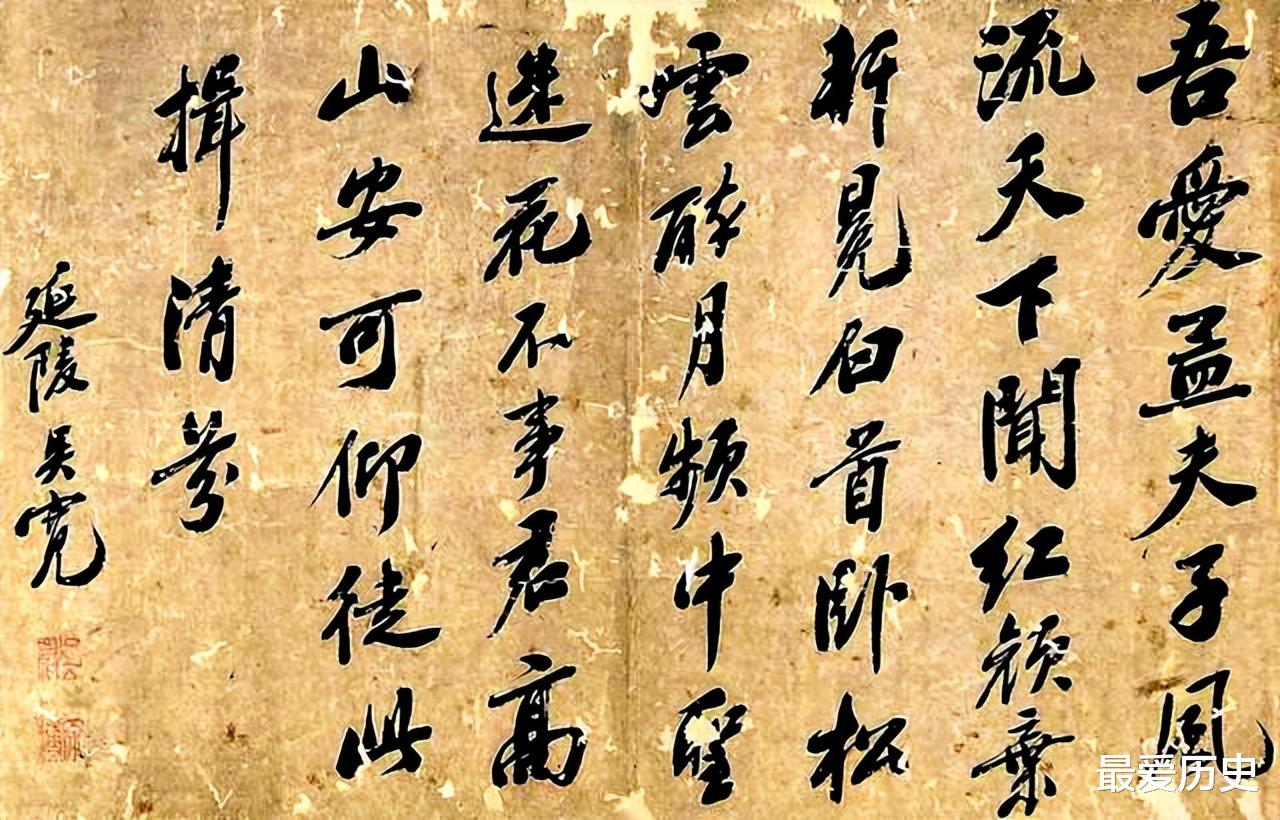 吾愛孟夫子風
流天下聞红顔棄
軒冕白首卧松
雲醉月頻中聖
迷花不事君高
山安可仰徒此
揖清芬
延陵吴寛
最爱历史